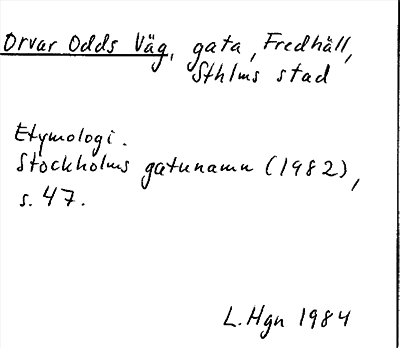 Orvar Odds Väg, gata, Fredhäll,
Sthlms stad
Etymologi.
Stockholms gatunamn (1982),
s. 47.
L. Hgn 1984